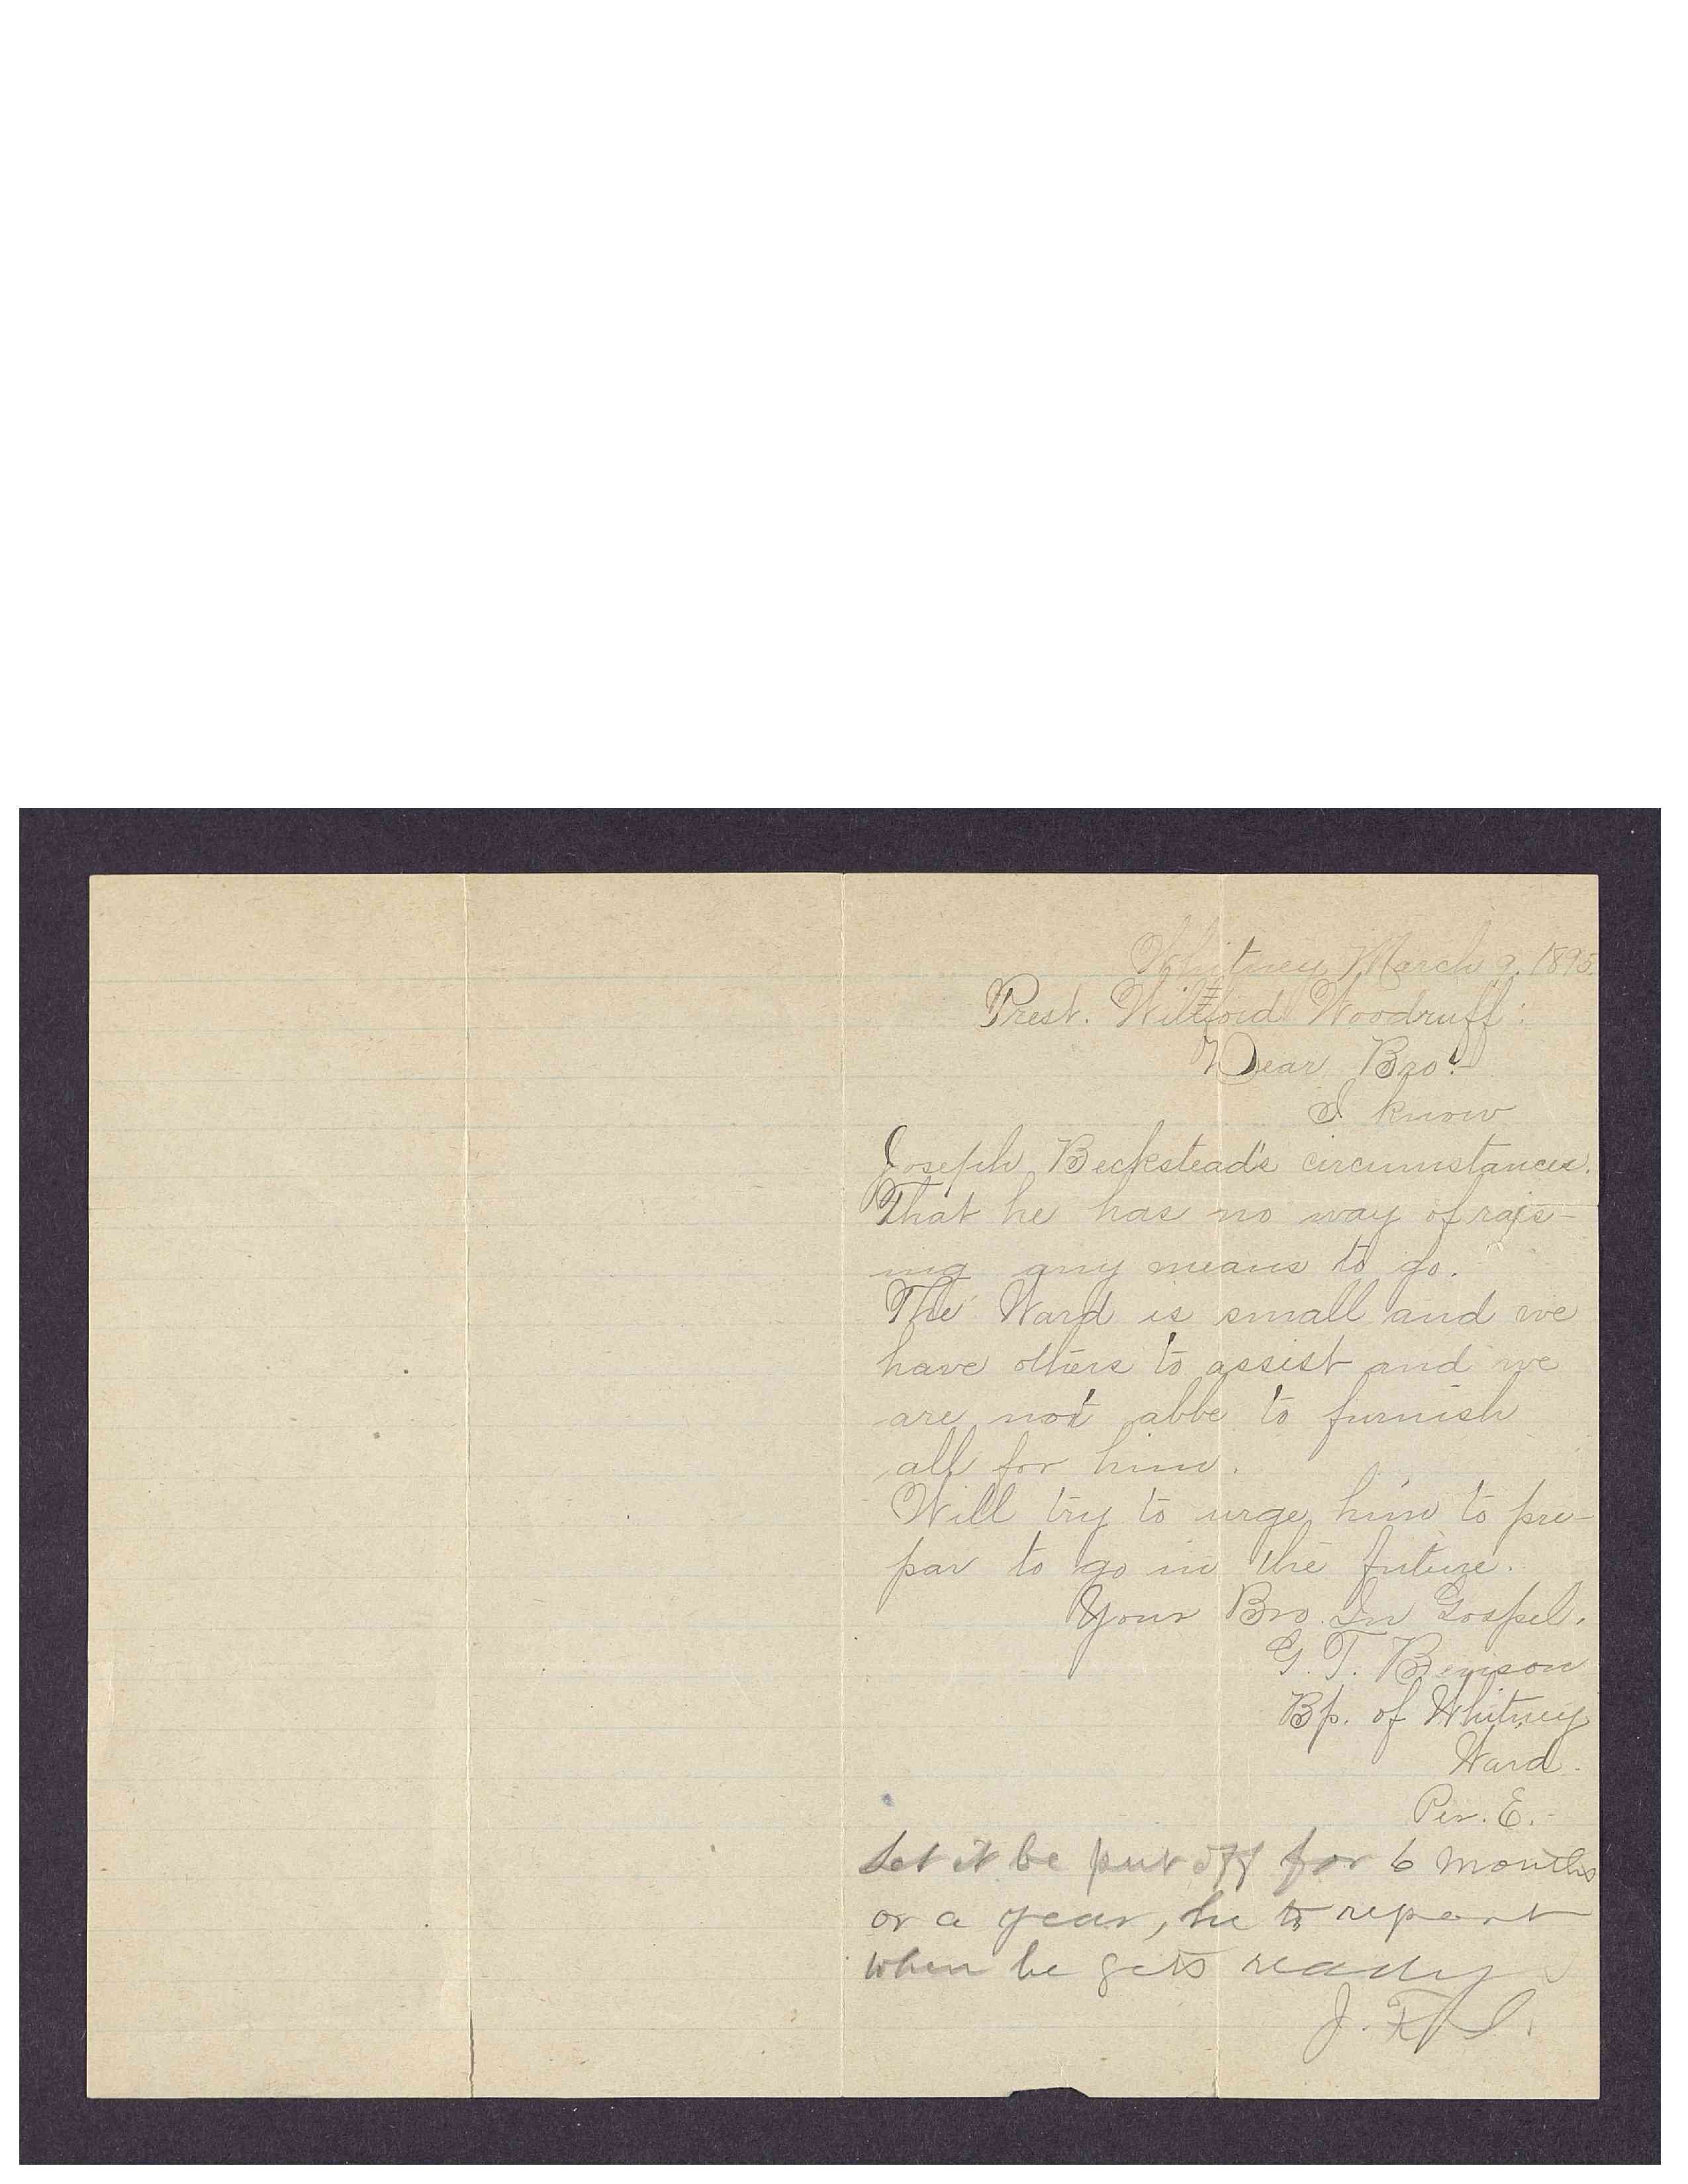 Whitney March 9. 1895
Prest. Wilford Woodruff:
Dear Bro:-
I know
Joseph Beckstead's circumstances.
That he has no way of rais-
ing any means to go.
The Ward is small and we
have others to assist and we
are not able to furnish
all for him.
Will try to urge him to pre-
par to go in the future.
Your Bro. In Gospel.
G. T. Benson
Bp. of Whitney
Ward.
Per. E.-
Let it be put off for 6 months
or a year, he to report
when he gets ready
J. F. S.